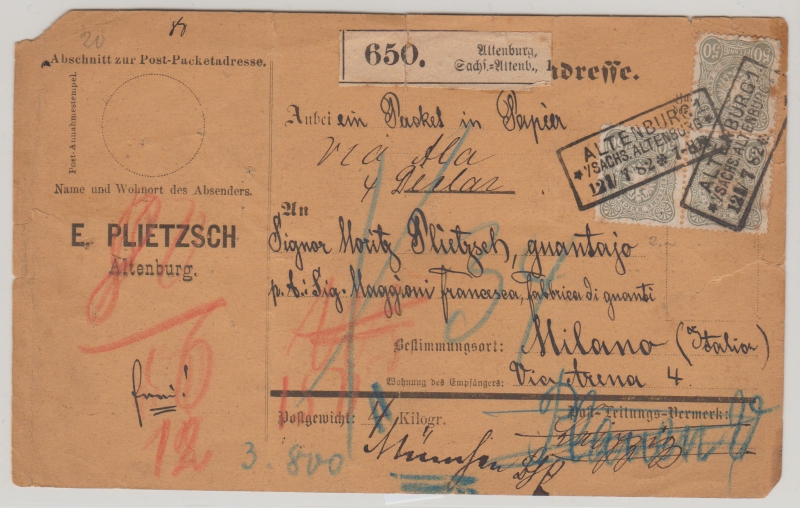 20
Abschnitt zur Post-Packetadresse.
Post-Annahmestempel.
Name und Wohnort des Absenders.
E. PLIETZSCH
Altenburg.
frei!
12
3.800
650. Altenburg,
Sachs.-Altenb., 1
adresse.
50 50
ALTENBURG 1
*i/SACHS.ALTENBURG*
12 / 7 82 * 1-8N
ALTENBURG 1
*i/SACHS.ALTENBURG
12 / 7 82 *
Anbei ein Packet in Papier
via Ala
An
Signor Moritz Plietzsch, guantajo
p. a. Sig. Maggioni Francesca, fabbrica di guanti
Bestimmungsort: Milano (Italia)
Wohnung des Empfängers: Via Arena 4
Postgewicht: 4 Kilogr.
Post-Leitungs-Vermerk:
Plauen
Leipzig
München